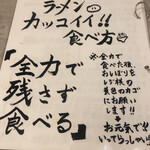 ラーメン
カッコイイ!!
食べ方
『全力で
残さず
食べる』
※全力で
食べた後、
おしぼりを
レジ様の
黄色のカゴ
にお願い
します!!
お元気で!!
いってらっしゃい!!